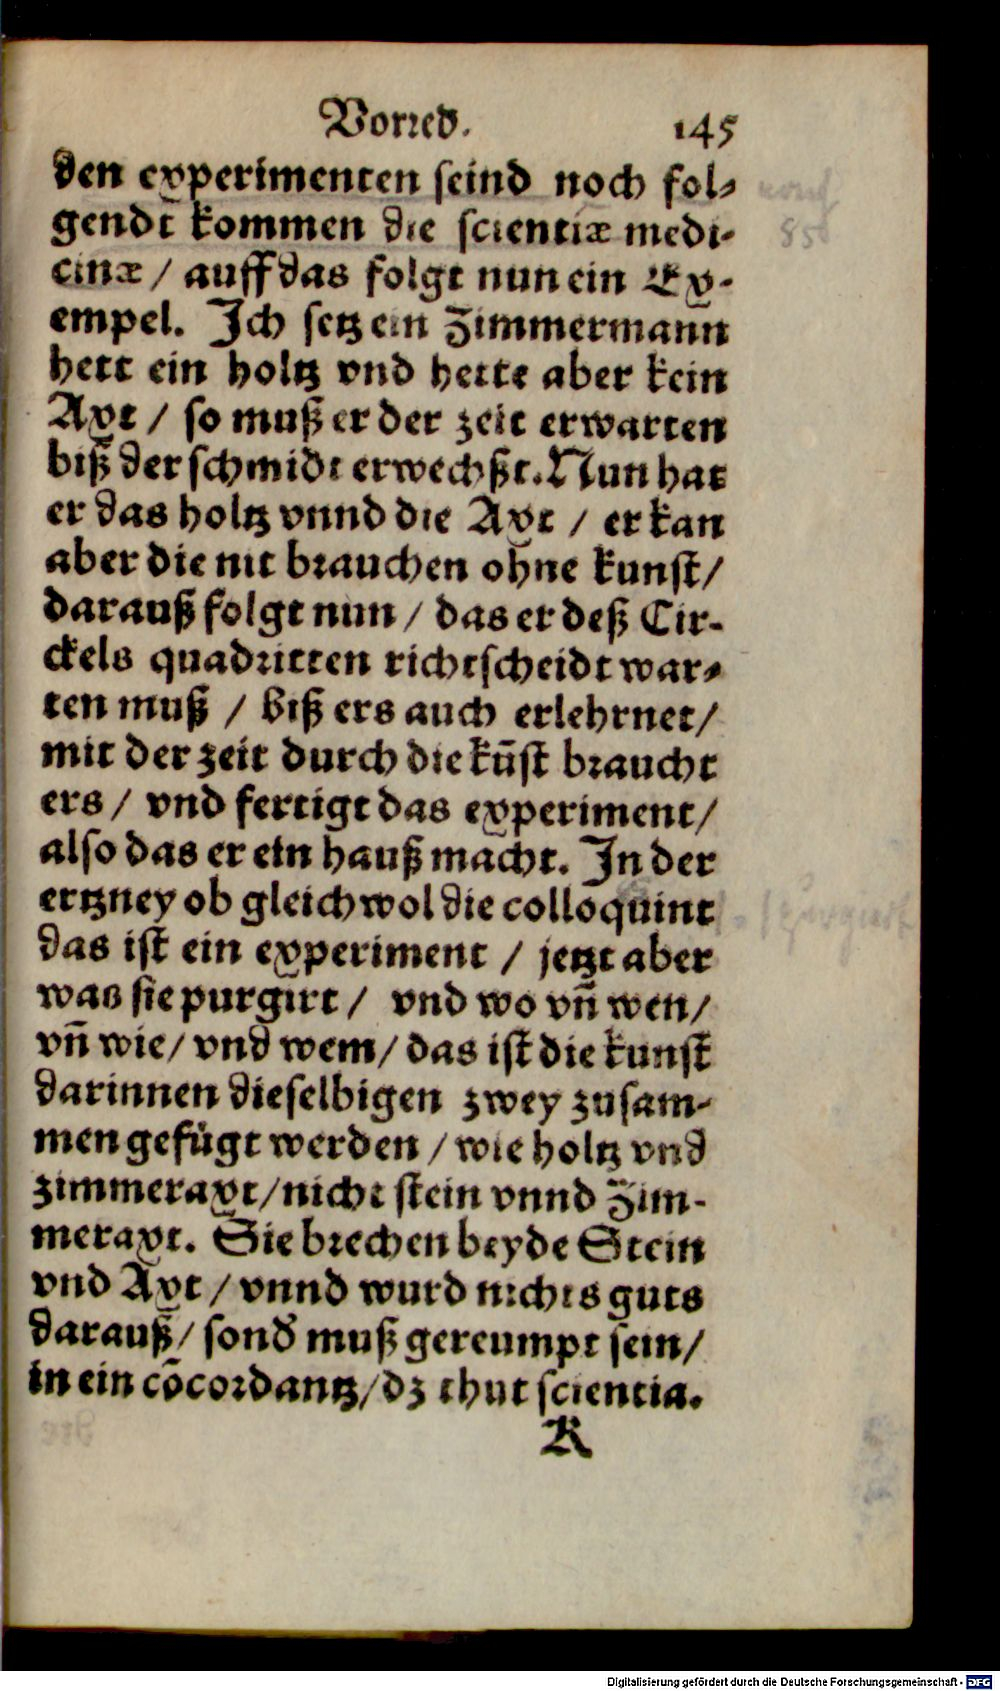 Vorꝛed. 145
den experimenten ſeind noch fol⸗
gendt kommen die ſcientiæ medi-
cinæ / auff das folgt nun ein Ex-
empel. Ich ſetz ein Zimmermann
hett ein holtz vnd hette aber kein
Axt / ſo muß er der zeit erwarten
biß der ſchmidt erwechßt. Nun hat
er das holtz vnnd die Axt / er kan
aber die nit bꝛauchen ohne kunſt /
darauß folgt nun / das er deß Cir-
ckels quadꝛitten richtſcheidt war⸗
ten muß / biß ers auch erlehrnet /
mit der zeit durch die kūſt bꝛaucht
ers / vnd fertigt das experiment /
alſo das er ein hauß macht. In der
ertzney ob gleich wol die colloquint
das iſt ein experiment / jetzt aber
was ſie purgirt / vnd wo vn̄ wen /
vn̄ wie / vnd wem / das iſt die kunſt
darinnen dieſelbigen zwey zuſam-
men gefügt werden / wie holtz vnd
zimmeraxt / nicht ſtein vnnd Zim-
meraxt. Sie bꝛechen beyde Stein
vnd Axt / vnnd wurd nichts guts
darauß / ſond̄ muß gereumpt ſein /
in ein cōcoꝛdantz / dz thut ſcientia.
K
Digitalisierung gefördert durch die Deutsche Forschungsgemeinschaft - DFG